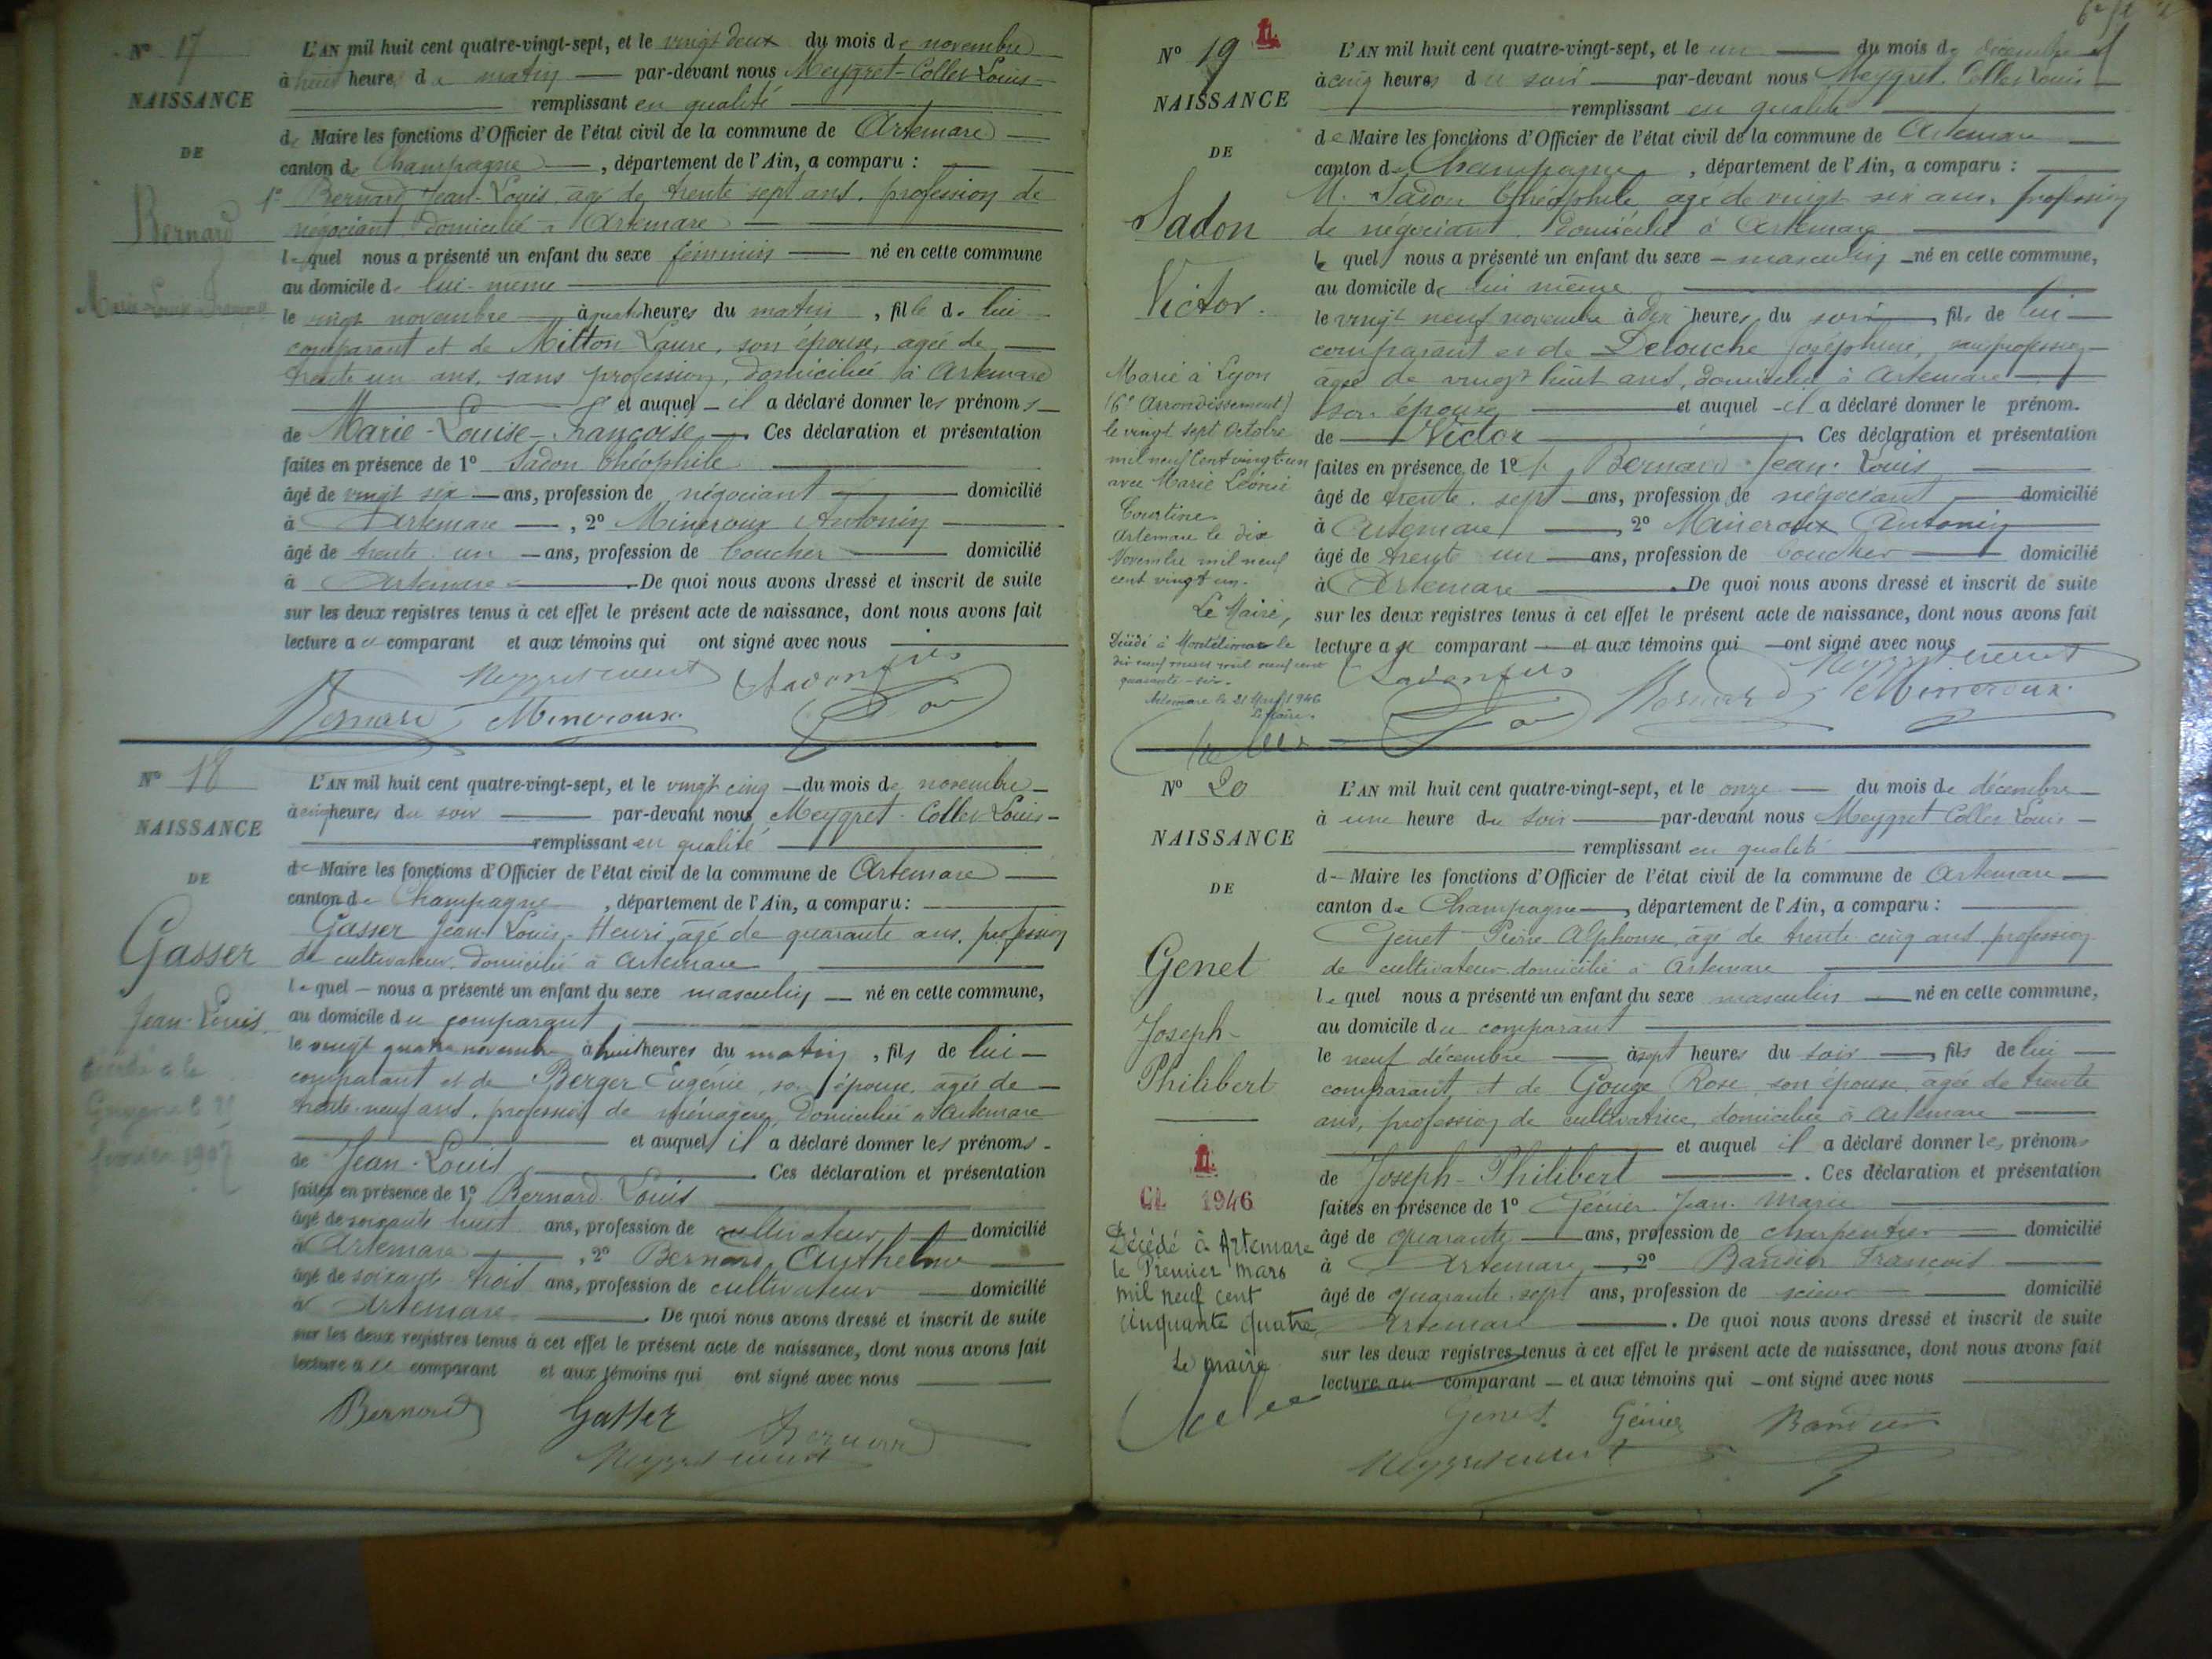 N° 17
NAISSANCE
DE
Bernard
Marie-Louise-Françoise
L'AN mil huit cent quatre-vingt-sept, et le vingt deux du mois de novembre
à heure du matin par-devant nous Meygret-Collet Louis
remplissant en qualité
de Maire les fonctions d'Officier de l'état civil de la commune de Artemare
canton de Champagne, département de l'Ain, a comparu :
1° Bernard Jean-Louis âgé de trente sept ans, profession de
négociant domicilié à Artemare
lequel nous a présenté un enfant du sexe féminin né en cette commune
au domicile de lui-même
le vingt novembre à quatre heures du matin, fille de lui
comparant et de Mitton Laure, son épouse, agée de
trente un ans, sans profession, domiciliée à Artemare
et auquel il a déclaré donner les prénoms
de Marie-Louise-Françoise. Ces déclaration et présentation
faites en présence de 1° Sadon théophile
âgé de vingt six ans, profession de négociant domicilié
à Artemare, 2° Mineroux Antonin
âgé de trente un ans, profession de boucher domicilié
à Artemare. De quoi nous avons dressé et inscrit de suite
sur les deux registres tenus à cet effet le présent acte de naissance, dont nous avons fait
lecture au comparant et aux témoins qui ont signé avec nous
Sadon fils
Bernard Mineroux
N° 18
NAISSANCE
DE
Gasser
Jean-Louis
L'AN mil huit cent quatre-vingt-sept, et le vingt cinq du mois de novembre
à cinq heures du soir par-devant nous Meygret-Collet Louis
remplissant en qualité
de Maire les fonctions d'Officier de l'état civil de la commune de Artemare
canton de Champagne, département de l'Ain, a comparu :
Gasser Jean-Louis-Henri, âgé de quarante ans, profession
de cultivateur, domicilié à Artemare
lequel nous a présenté un enfant du sexe masculin né en cette commune,
au domicile du comparant
le vingt quatre novembre à huit heures du matin, fils de lui
comparant et de Berger Eugénie, son épouse, agée de
trente-neuf ans, profession de ménagère, domiciliée à Artemare
et auquel il a déclaré donner les prénoms
de Jean-Louis. Ces déclaration et présentation
faites en présence de 1° Bernard Louis
âgé de soixante huit ans, profession de cultivateur domicilié
à Artemare, 2° Bernard Anthelme
âgé de soixante trois ans, profession de cultivateur domicilié
à Artemare. De quoi nous avons dressé et inscrit de suite
sur les deux registres tenus à cet effet le présent acte de naissance, dont nous avons fait
lecture au comparant et aux témoins qui ont signé avec nous
Bernard Gasser
Bernard
N° 19
NAISSANCE
DE
Sadon
Victor.
Marié à Lyon
(6e Arrondissement)
le vingt sept Octobre
mil neuf Cent vingt un
avec Marie Léonie
Courtine
Artemare le dix
Novembre mil neuf
cent vingt un.
Le Maire,
Décédé à Montélimar le
dix neuf mars mil neuf cent
quarante-six.
Artemare le 21 1946
Le Maire.
L'AN mil huit cent quatre-vingt-sept, et le un du mois de décembre
à cinq heures du soir par-devant nous Meygret-Collet Louis
remplissant en qualité
de Maire les fonctions d'Officier de l'état civil de la commune de Artemare
canton de Champagne, département de l'Ain, a comparu :
M. Sadon théophile âgé de vingt six ans, profession
de négociant, domicilié à Artemare
le quel nous a présenté un enfant du sexe masculin né en cette commune,
au domicile de lui même
le vingt neuf novembre à dix heures du soir, fils de lui
comparant et de Delouche Joséphine, sans profession
agée de vingt huit ans, domiciliée à Artemare
son épouse et auquel il a déclaré donner le prénom
de Victor. Ces déclaration et présentation
faites en présence de 1° Bernard Jean-Louis
âgé de trente sept ans, profession de négociant domicilié
à Artemare, 2° Mineroux Antonin
âgé de trente un ans, profession de boucher domicilié
à Artemare. De quoi nous avons dressé et inscrit de suite
sur les deux registres tenus à cet effet le présent acte de naissance, dont nous avons fait
lecture au comparant et aux témoins qui ont signé avec nous
Sadon fils Bernard Mineroux
N° 20
NAISSANCE
DE
Genet
Joseph-
Philibert
1946
Décédé à Artemare
le Premier mars
mil neuf cent
cinquante quatre
Le maire
L'AN mil huit cent quatre-vingt-sept, et le onze du mois de décembre
à une heure du soir par-devant nous Meygret-Collet Louis
remplissant en qualité
de Maire les fonctions d'Officier de l'état civil de la commune de Artemare
canton de Champagne, département de l'Ain, a comparu :
Genet Pierre Alphonse, âgé de trente cinq ans profession
de cultivateur domicilié à Artemare
lequel nous a présenté un enfant du sexe masculin né en cette commune,
au domicile du comparant
le neuf décembre à sept heures du soir, fils de lui
comparant et de Gouge Rose, son épouse, agée de trente
ans, profession de cultivatrice, domiciliée à Artemare
et auquel il a déclaré donner les prénoms
de Joseph-Philibert. Ces déclaration et présentation
faites en présence de 1° Génier Jean-Marie
âgé de quarante ans, profession de charpentier domicilié
à Artemare, 2° François
âgé de quarante-sept ans, profession de scieur domicilié
Artemare. De quoi nous avons dressé et inscrit de suite
sur les deux registres tenus à cet effet le présent acte de naissance, dont nous avons fait
lecture au comparant et aux témoins qui ont signé avec nous
Genet Génier